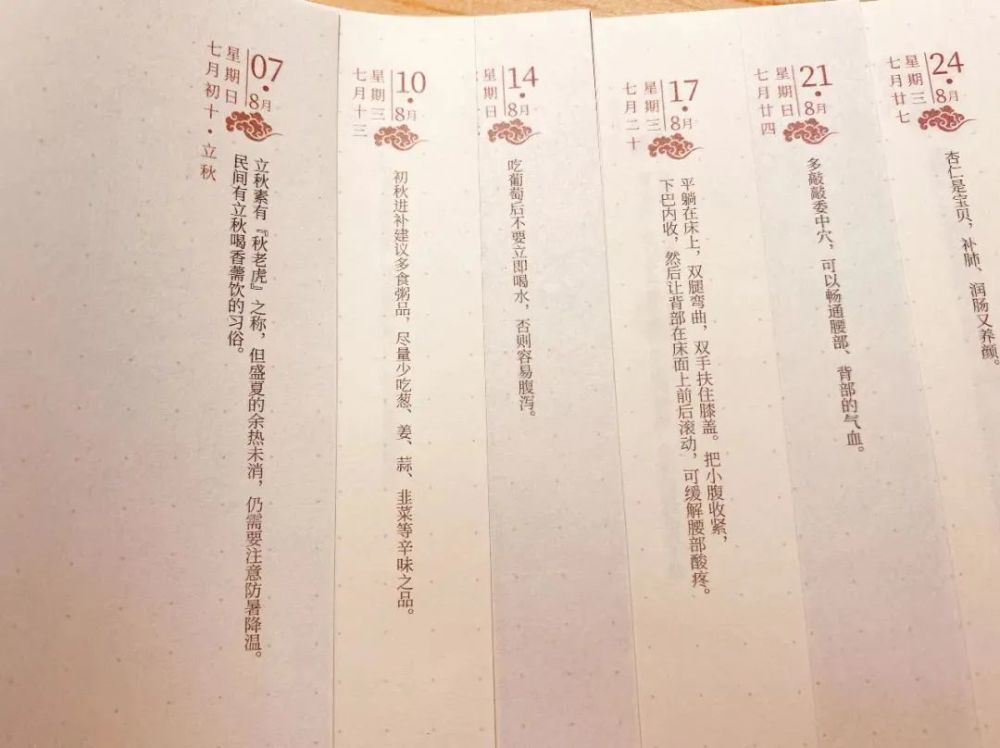 07·8月
星期日
七月初十·立秋
立秋素有『秋老虎』之称，但盛夏的余热未消，仍需要注意防暑降温。
民间有立秋喝香薷饮的习俗。
10·8月
星期三
七月十三
初秋进补建议多食粥品，尽量少吃葱、姜、蒜、韭菜等辛味之品。
14·8月
星期日
吃葡萄后不要立即喝水，否则容易腹泻。
17·8月
星期三
七月二十
平躺在床上，双腿弯曲，双手扶住膝盖。把小腹收紧，
下巴内收，然后让背部在床面上前后滚动，可缓解腰部酸疼。
21·8月
星期日
七月廿四
多敲敲委中穴，可以畅通腰部、背部的气血。
24·8月
星期三
七月廿七
杏仁是宝贝，补肺、润肠又养颜。